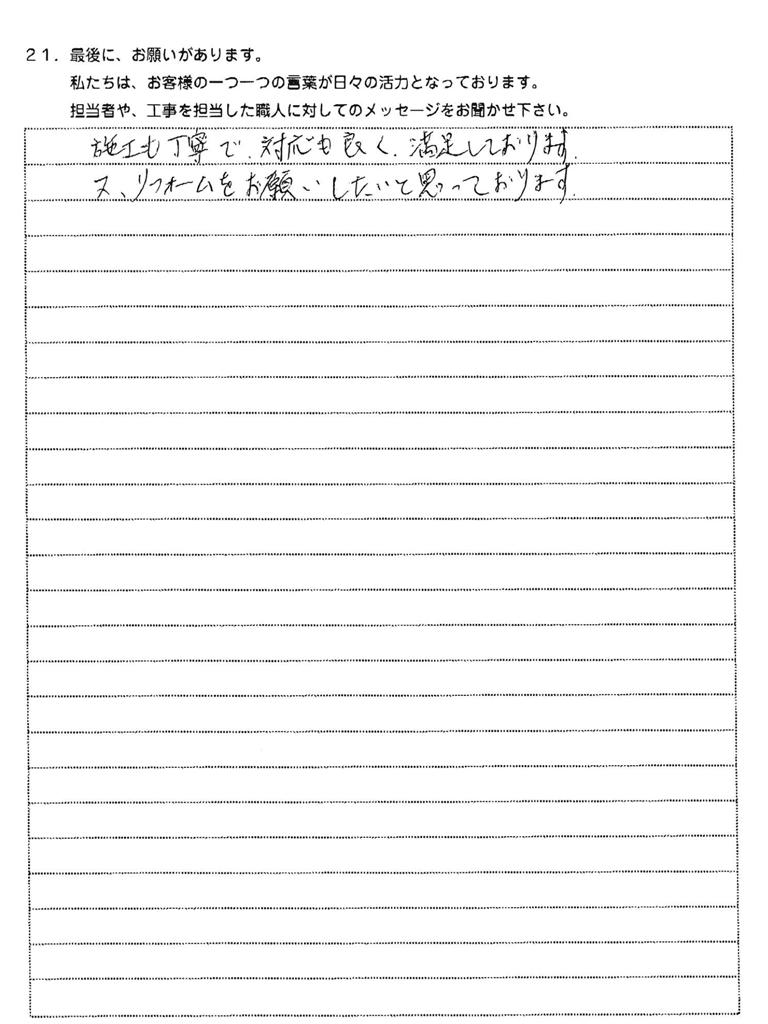 21. 最後に、お願いがあります。
私たちは、お客様の一つ一つの言葉が日々の活力となっております。
担当者や、工事を担当した職人に対してのメッセージをお聞かせ下さい。
施工も丁寧で、対応も良く、満足しております。
又、リフォームをお願いしたいと思っております。